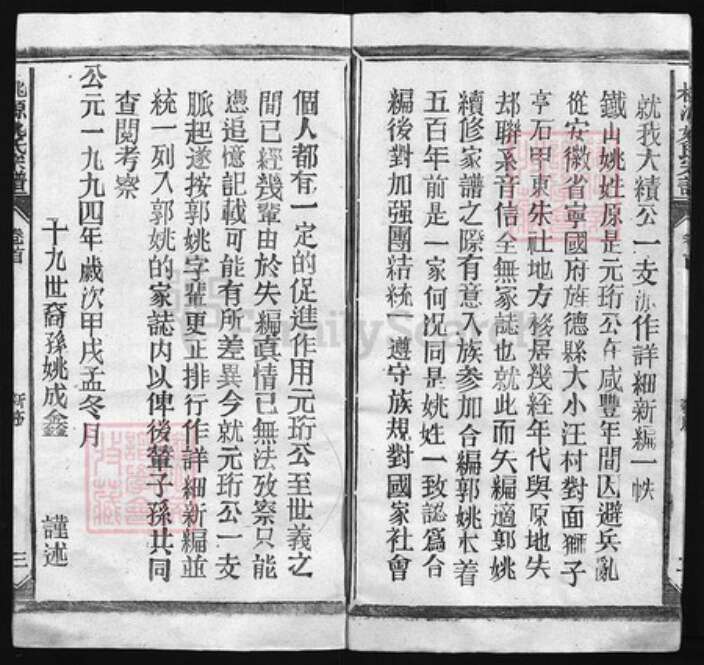 就我大績公一支派作詳細新編一帙
鐵山姚姓原是元珩公在咸豐年間因避兵亂
從安徽省寧國府旌德縣大小汪村對面獅子
亭石甲東朱社地方移居幾經年代與原地失
却聯系音信全無家誌也就此而失編適郭姚
續修家譜之際有意入族參加合編郭姚本着
五百年前是一家何况同是姚姓一致認爲合
編後對加强團結統一遵守族規對國家社會
個人都有一定的促進作用元珩公至世義之
間已經幾輩由於失編真情已無法攷察只能
憑追憶記載可能有所差異今就元珩公一支
脈起遂按郭姚字輩更正排行作詳細新編並
統一列入郭姚的家誌内以俾後輩子孫共同
查閱考察
公元一九九四年歲次甲戌孟冬月
十九世裔孫姚成鑫 謹述
姚氏宗譜
卷首
三
FamilySearch